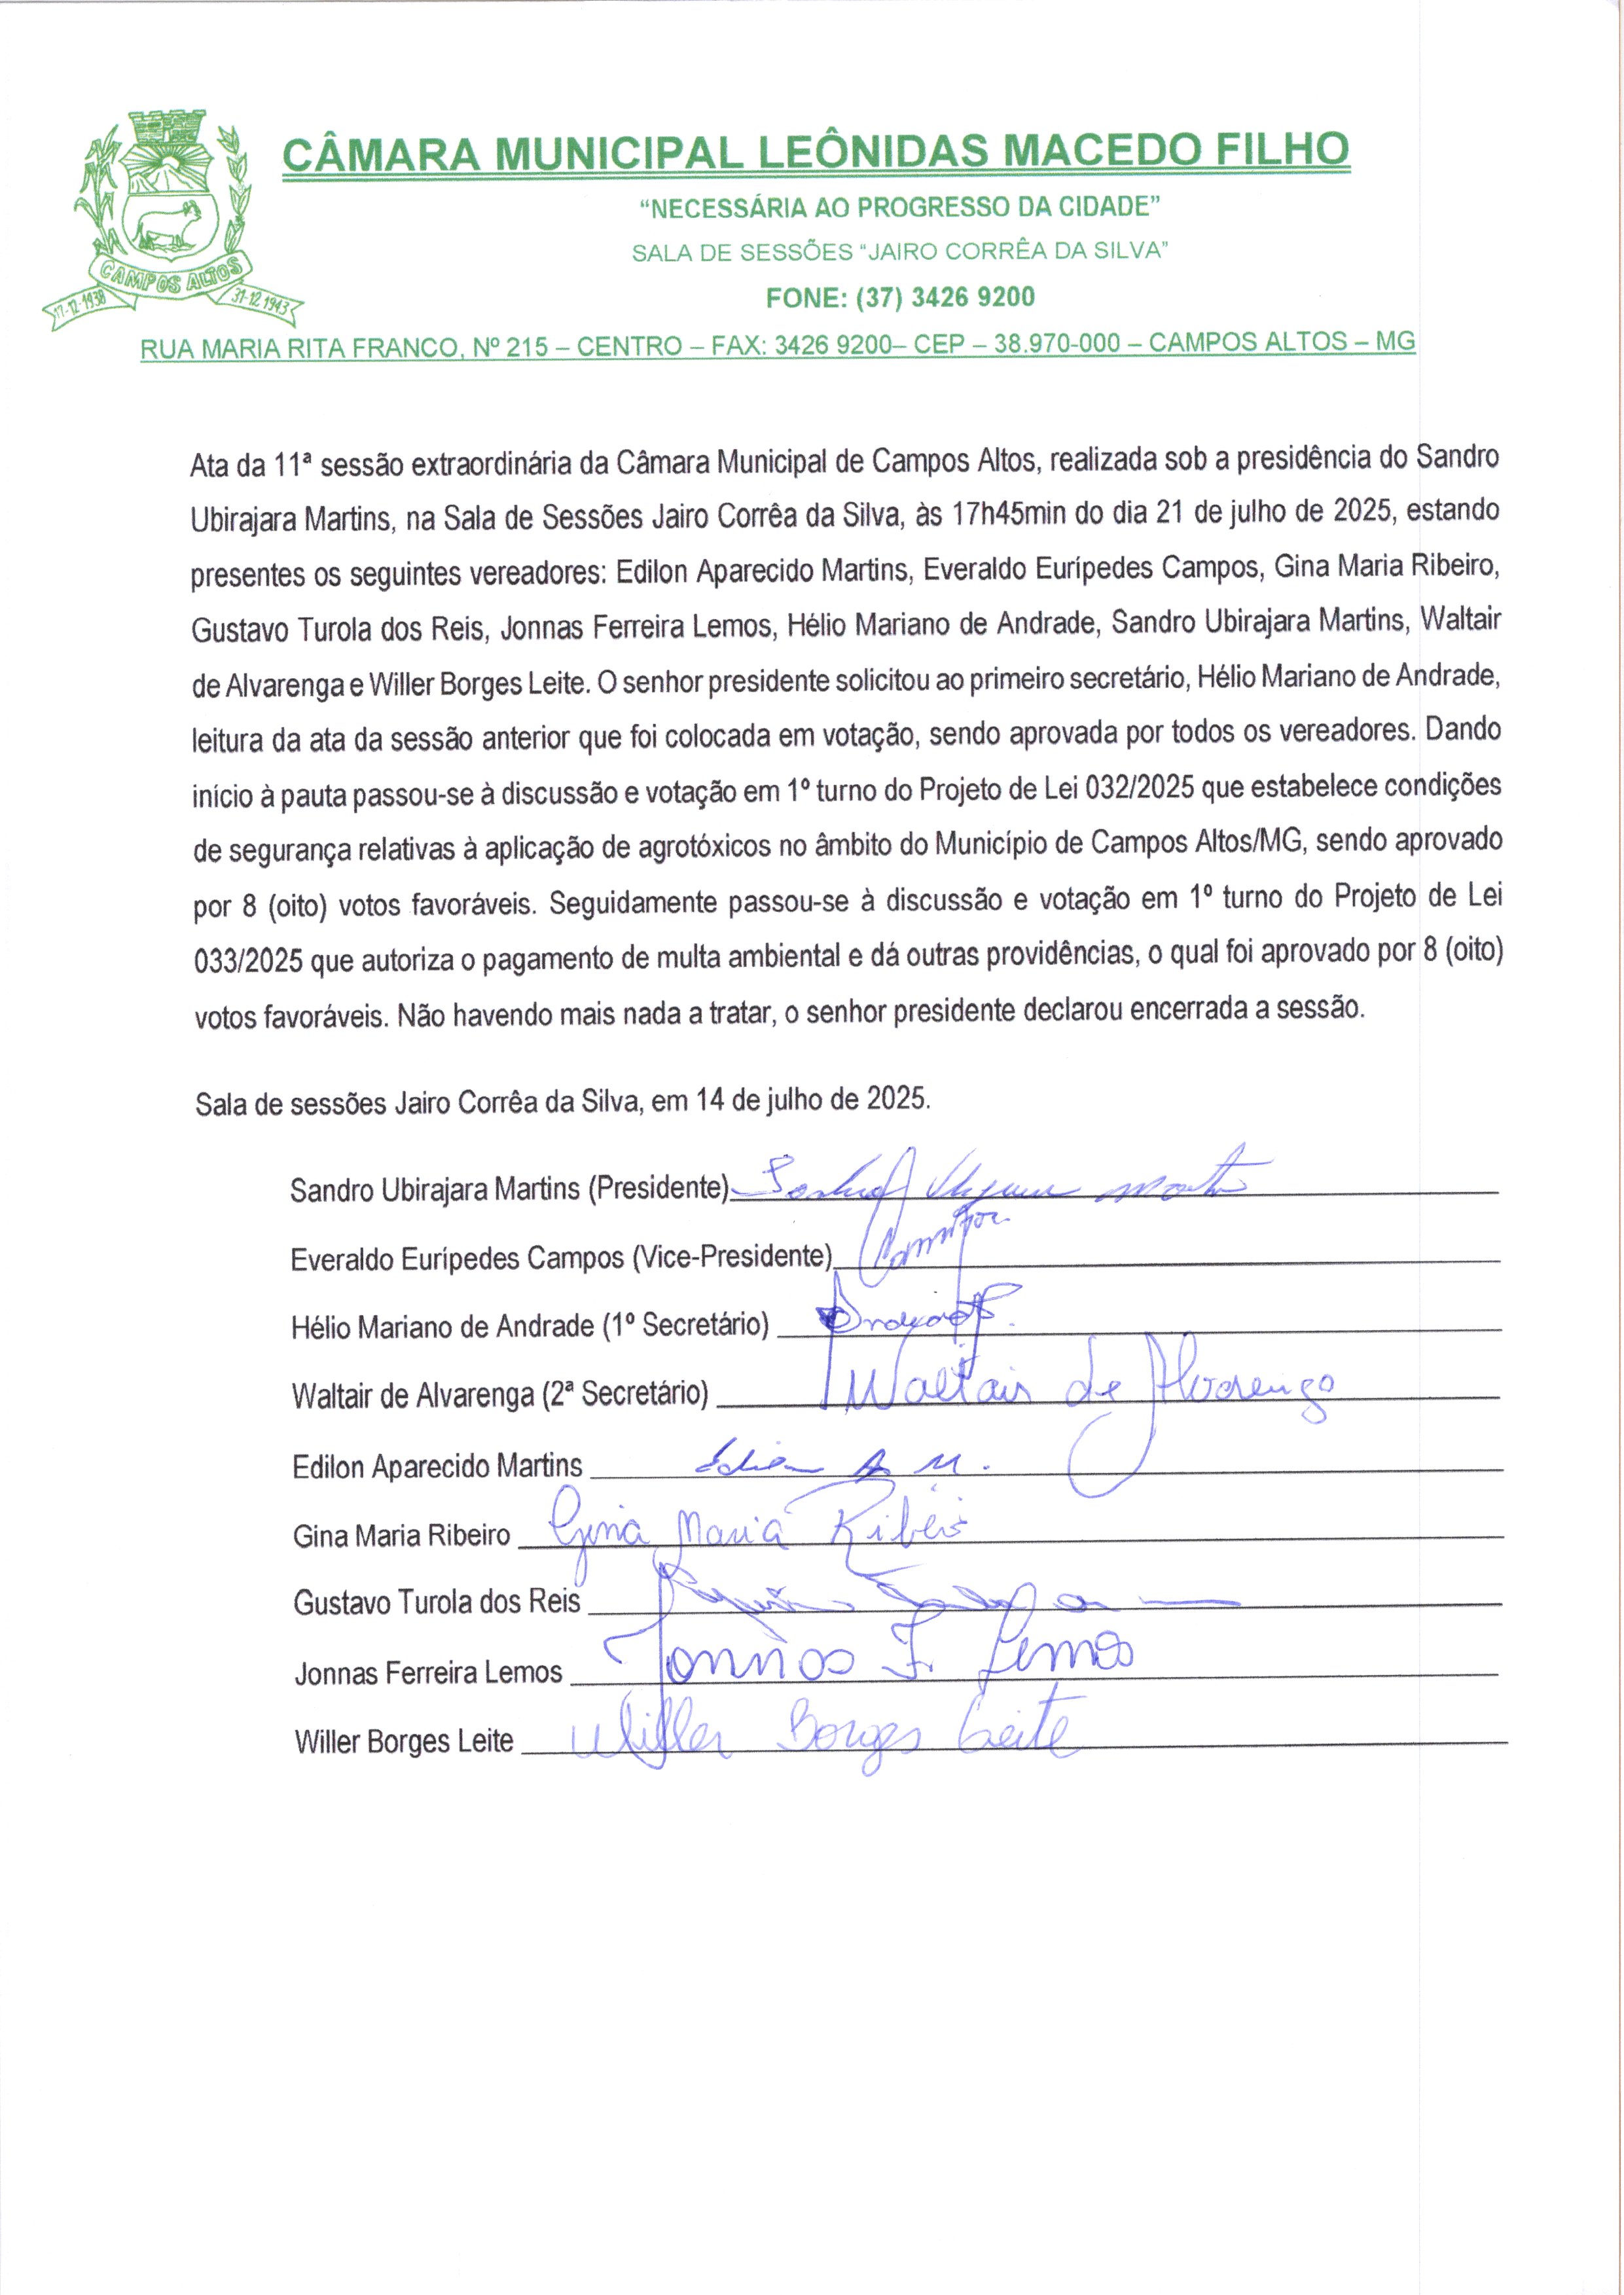 CÂMARA MUNICIPAL LEÔNIDAS MACEDO FILHO
“NECESSÁRIA AO PROGRESSO DA CIDADE”
SALA DE SESSÕES “JAIRO CORRÊA DA SILVA”
CAMPOS ALTOS
17-12-1938
31-12.1943
FONE: (37) 3426 9200
RUA MARIA RITA FRANCO, Nº 215 – CENTRO – FAX: 3426 9200– CEP – 38.970-000 – CAMPOS ALTOS – MG
Ata da 11ª sessão extraordinária da Câmara Municipal de Campos Altos, realizada sob a presidência do Sandro
Ubirajara Martins, na Sala de Sessões Jairo Corrêa da Silva, às 17h45min do dia 21 de julho de 2025, estando
presentes os seguintes vereadores: Edilon Aparecido Martins, Everaldo Eurípedes Campos, Gina Maria Ribeiro,
Gustavo Turola dos Reis, Jonnas Ferreira Lemos, Hélio Mariano de Andrade, Sandro Ubirajara Martins, Waltair
de Alvarenga e Willer Borges Leite. O senhor presidente solicitou ao primeiro secretário, Hélio Mariano de Andrade,
leitura da ata da sessão anterior que foi colocada em votação, sendo aprovada por todos os vereadores. Dando
início à pauta passou-se à discussão e votação em 1º turno do Projeto de Lei 032/2025 que estabelece condições
de segurança relativas à aplicação de agrotóxicos no âmbito do Município de Campos Altos/MG, sendo aprovado
por 8 (oito) votos favoráveis. Seguidamente passou-se à discussão e votação em 1º turno do Projeto de Lei
033/2025 que autoriza o pagamento de multa ambiental e dá outras providências, o qual foi aprovado por 8 (oito)
votos favoráveis. Não havendo mais nada a tratar, o senhor presidente declarou encerrada a sessão.
Sala de sessões Jairo Corrêa da Silva, em 14 de julho de 2025.
Sandro Ubirajara Martins (Presidente)
Everaldo Eurípedes Campos (Vice-Presidente)
Hélio Mariano de Andrade (1º Secretário)
Waltair de Alvarenga (2ª Secretário) Waltair de Alvarenga
Edilon Aparecido Martins
Gina Maria Ribeiro Gina Maria Ribeiro
Gustavo Turola dos Reis
Jonnas Ferreira Lemos Jonnas F. Lemos
Willer Borges Leite Willer Borges Leite